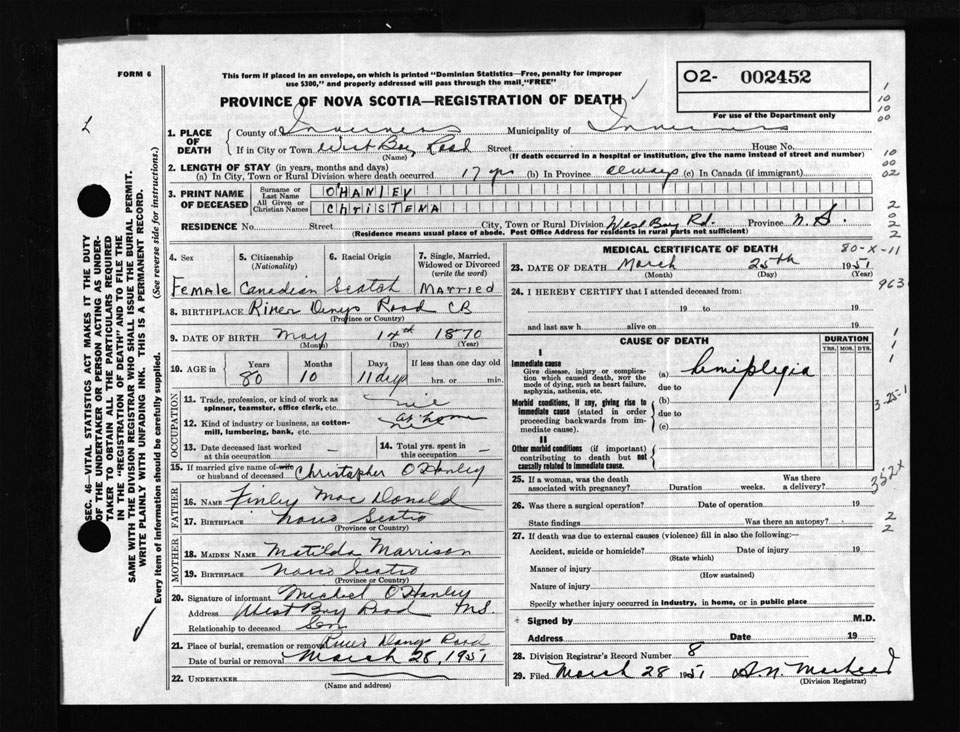 FORM 6
This form if placed in an envelope, on which is printed "Dominion Statistics—Free, penalty for improper
use $300," and properly addressed will pass through the mail "FREE"
PROVINCE OF NOVA SCOTIA—REGISTRATION OF DEATH
O2- 002452
For use of the Department only
1. PLACE OF DEATH
County of Inverness Municipality of Inverness
If in City or Town West Bay Road Street House No.
(Name) (If death occurred in a hospital or institution, give the name instead of street and number)
2. LENGTH OF STAY (in years, months and days)
(a) In City, Town or Rural Division where death occurred 17 yrs (b) In Province always (c) In Canada (if immigrant)
3. PRINT NAME OF DECEASED
Surname or Last Name O'HANLEY
All Given or Christian Names CHRISTENA
RESIDENCE No. Street City, Town or Rural Division West Bay Rd. Province N.S.
(Residence means usual place of abode. Post Office Address for residents in rural parts not sufficient)
4. Sex
FEMALE
5. Citizenship (Nationality)
Canadian
6. Racial Origin
Scotch
7. Single, Married, Widowed or Divorced (write the word)
MARRIED
8. BIRTHPLACE River Denys Road CB
(Province or Country)
9. DATE OF BIRTH May 14th 1870
(Month) (Day) (Year)
10. AGE in Years Months Days If less than one day old
80 10 11 days hrs. or min.
OCCUPATION
11. Trade, profession, or kind of work as
spinner, teamster, office clerk, etc.
12. Kind of industry or business, as cotton-
mill, lumbering, bank, etc. at home
13. Date deceased last worked at this occupation –
14. Total yrs. spent in this occupation –
15. If married give name of wife
or husband of deceased Christopher O'Hanley
FATHER
16. NAME Finley MacDonald
17. BIRTHPLACE Nova Scotia
(Province or Country)
MOTHER
18. MAIDEN NAME Matilda Marrison
19. BIRTHPLACE Nova Scotia
(Province or Country)
20. Signature of informant Michael O'Hanley
Address West Bay Road N.S.
Relationship to deceased Son
21. Place of burial, cremation or removal River Denys Road
Date of burial or removal March 28, 1951
22. UNDERTAKER
(Name and address)
MEDICAL CERTIFICATE OF DEATH
80-X-11
23. DATE OF DEATH March 25th 1951
(Month) (Day) (Year)
24. I HEREBY CERTIFY that I attended deceased from:
19 to 19
and last saw h alive on 19
CAUSE OF DEATH
DURATION
YRS. MOS. DYS.
I
Immediate cause
Give disease, injury or complica-
tion which caused death, not the
mode of dying, such as heart failure,
asphyxia, asthenia, etc.
(a) hemiplegia
due to
Morbid conditions, if any, giving rise to
immediate cause (stated in order
proceeding backwards from im-
mediate cause).
(b)
due to
(c)
II
Other morbid conditions (if important)
contributing to death but not
causally related to immediate cause.
25. If a woman, was the death
associated with pregnancy? Duration weeks. Was there a delivery?
26. Was there a surgical operation? Date of operation 19
State findings Was there an autopsy?
27. If death was due to external causes (violence) fill in also the following:—
Accident, suicide or homicide? Date of injury 19
(State which)
Manner of injury
(How sustained)
Nature of injury
Specify whether injury occurred in industry, in home, or in public place
Signed by M.D.
Address Date 19
28. Division Registrar's Record Number 8
29. Filed March 28 1951
(Division Registrar)
SEC. 46—VITAL STATISTICS ACT MAKES IT THE DUTY
OF THE UNDERTAKER OR PERSON ACTING AS UNDER-
TAKER TO OBTAIN ALL THE PARTICULARS REQUIRED
IN THE "REGISTRATION OF DEATH" AND TO FILE THE
SAME WITH THE DIVISION REGISTRAR WHO SHALL ISSUE THE BURIAL PERMIT.
WRITE PLAINLY WITH UNFADING INK. THIS IS A PERMANENT RECORD.
Every item of information should be carefully supplied. (See reverse side for instructions.)
1
10
10
00
10
00
02
2
0
2
2
963
1
1
1
3-25-1
352X
2
2